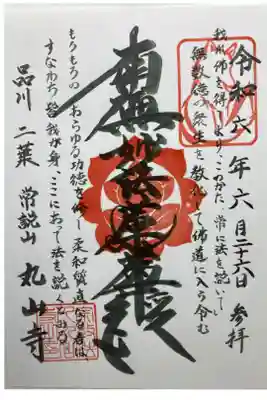 令和六年六月二十六日 参拝
我れ佛を得てより、このかた、常に法を説いて
無数億の衆生を教化して佛道に入ら令む
南無妙法蓮華経
もろもろの あらゆる功徳を修し 柔和質直なる者は
すなわち皆我が身、ここにあって法を説くとみる
品川 二葉 常説山 丸山寺